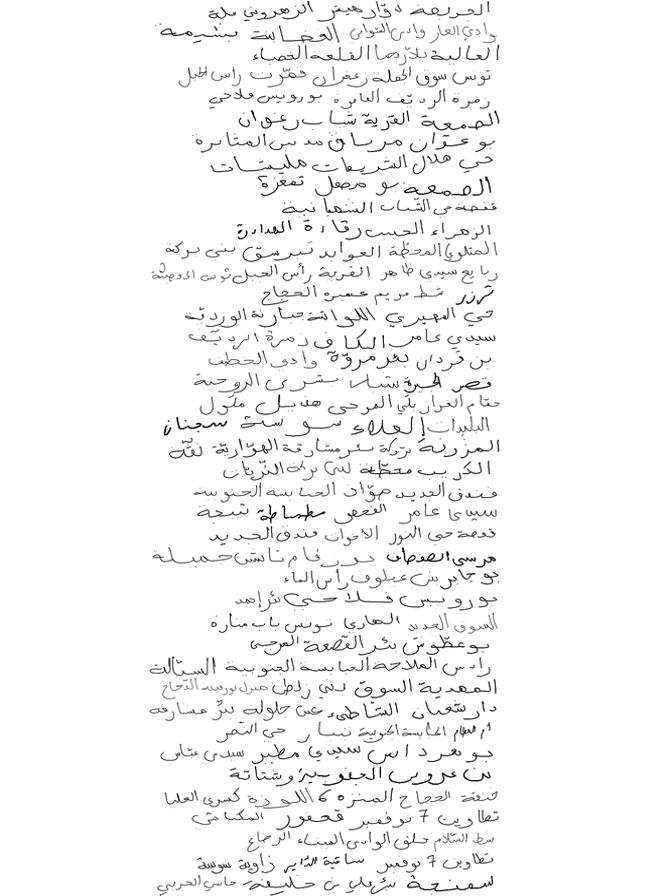 الجريصة دوار هيشر الزهروني قلة
وادي الغار وادي الشواي العقابة بشيمة
العالية بلاريجيا القلعة الخصباء
تونس سوق الجملة زعفران قمرت راس الجبل
زمرة الرديف العامرة بورويس فلاحي
الصمعة القرية شباب زغوان
بو عوان مرناق مدنين المثابرة
حي هلال الشريفات مليشات
الصمعة بو مرحل تمغزة
قفصة حي الشباب الشعبانية
الزهراء الحبيب رقادة الهدادرة
المتلوي المحطة العوابد تبرسق بني بركة
ربايع سيدي ظاهر القرية رأس الجبل
توزر شط مريم عميرة الحجاج
حي المهيري اللواتة جبارنة الوردية
سيدي عامر الكاف زمرة الرديف
بن قردان بئر مروة وادي الخطف
قصر شباب بشرى الروحية
العوجى هذيل ملول
البليدات العلاء سوسة سجنان
المزونة بركة بئر مشارقة الهوارية نقة
الكريب محطة لبنى بركة التريات
فندق الجديد صواف العبابسة الجنوبية
سيدي عامر الفحص مطماطة شبعة
قفصة حي النور الأخوات فندق الجديد
مرسى القصبات تاتش جميلة
بو جابر بن عطوف رأس الماء
بورويس فلاحي بئر احمد
السوق الجديد الهاري تونس باب منارة
بوعطوش بئر القصعة العوجى
رادس الملاحة العبابسة الجنوبية السبالة
المهدية السوق بني زلطن منزل بورقيبة الدخاج
دار شعبان الشاطئ عين جلولة بئر مشارقة
أم العظام العبابسة الجنوبية نيبار حي النصر
بومرداس سيدي مطير سيدي عباس
بن عروس الجنوبية وشتاتة
خنقة الحجاج المنزه 6 اللوزة كسرى العليا
تطاوين 7 نوفمبر قحفور المكناسي
شط السلام حلق الوادي الميناء الرضاع
تطاوين 7 نوفمبر ساقية الداير زاوية سوسة
سمنجة بئر علي بن خليفة حاسي الجربي